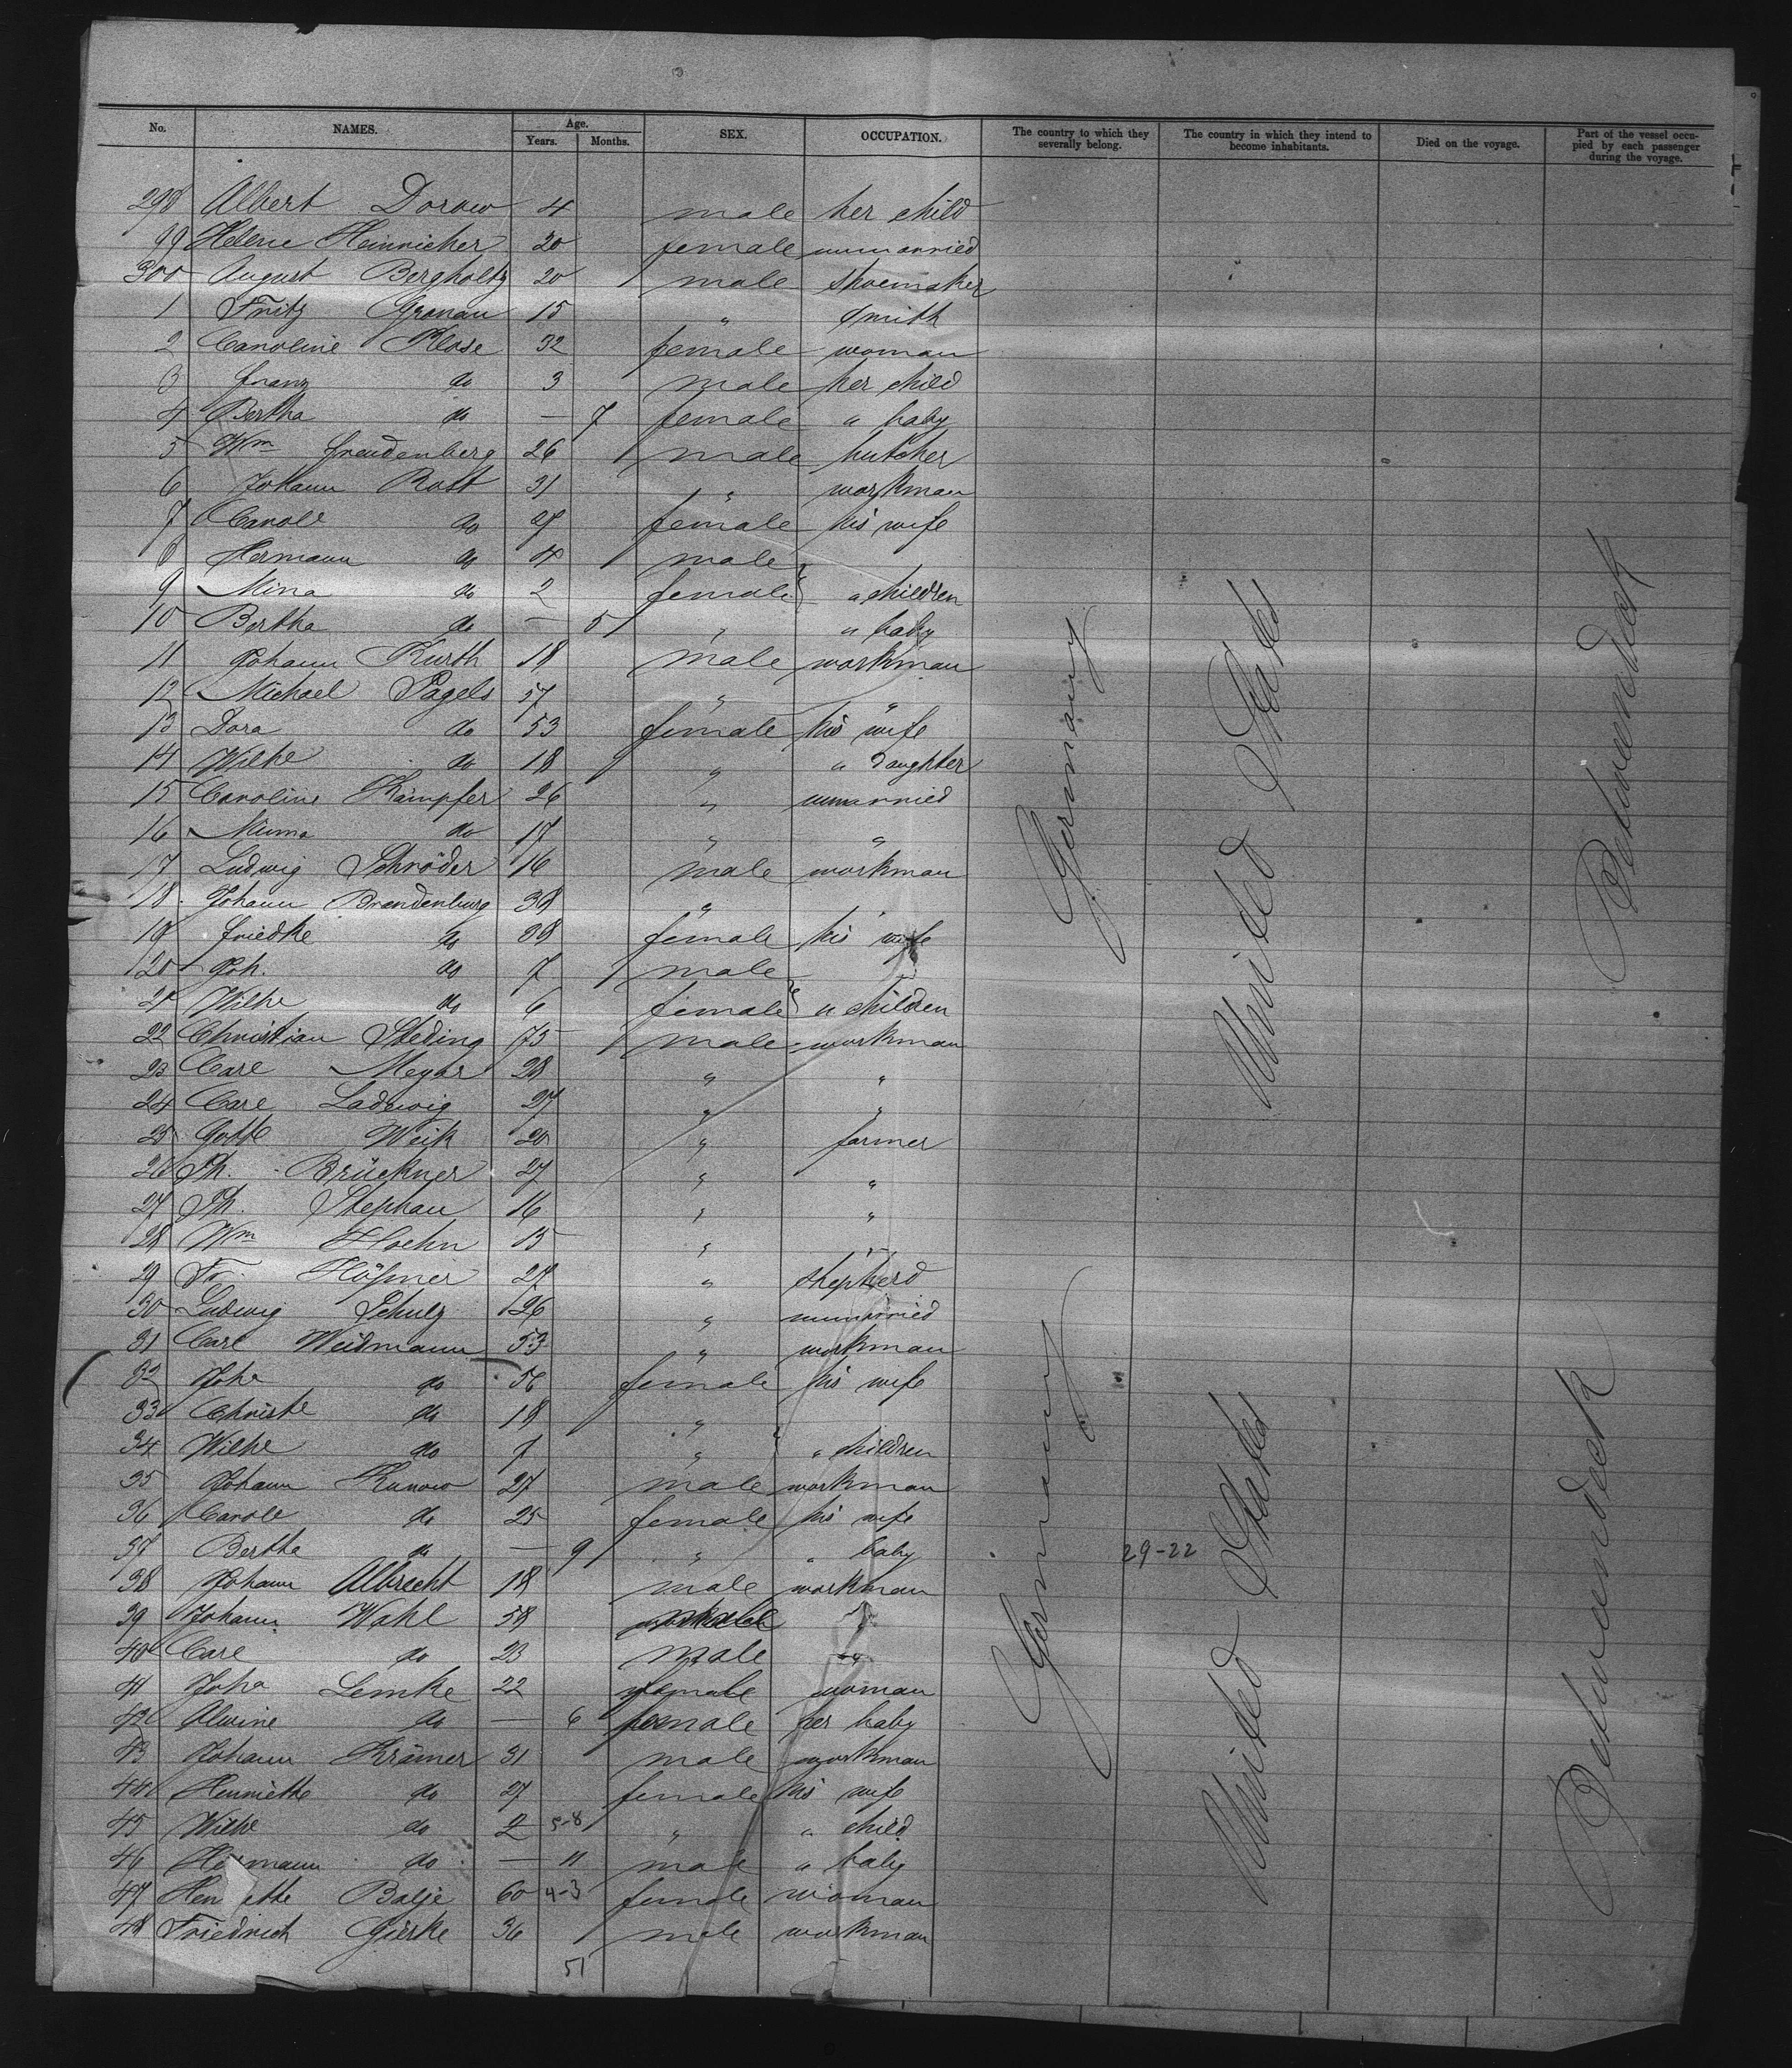 No. NAMES. Age. Years. Months. SEX. OCCUPATION. The country to which they severally belong. The country in which they intend to become inhabitants. Died on the voyage. Part of the vessel occupied by each passenger during the voyage.
298 Albert Dorow 4 male her child
99 Helene Heinricher 20 female unmarried
300 August Bergholtz 20 male shoemaker
1 Fritz Gronau 15 " smith
2 Caroline Klose 32 female woman
3 Franz do 3 male her child
4 Bertha do — 7 female " baby
5 Wm Freudenberg 26 male butcher
6 Johann Rost 31 " workman
7 Carole do 27 female his wife
8 Hermann do 4 male
9 Mina do 2 female " children
10 Bertha do — 5 " " baby
11 Johann Kurth 18 male workman
12 Michael Pagels 57 " "
13 Dora do 53 female his wife
14 Wilhe do 18 " " daughter
15 Caroline Kämpfer 26 " unmarried
16 Minna do 17 " "
17 Ludwig Schröder 16 male workman
18 Johann Brandenburg 38 " "
19 Friedke do 38 female his wife
20 Joh. do 7 male
21 Wilhe do 6 female " children
22 Christian Steding 75 male workman
23 Carl Meyer 28 " "
24 Carl Ladwig 27 " "
25 Gottl Weik 20 " farmer
26 Ph. Brückner 27 " "
27 Ph. Stephan 16 " "
28 Wm Hoehn 15 " "
29 Fr. Höfner 27 " shepherd
30 Ludwig Schulz 26 " unmarried
31 Carl Weidmann 53 " workman
32 Johe do 56 female his wife
33 Christe do 18 "
34 Wilhe do 7 " " children
35 Johann Kunow 27 male workman
36 Carole do 25 female his wife
37 Bertha do — 9 " " baby
38 Johann Albrecht 18 male workman
39 Johann Wahl 58 "
40 Carl do 23 male "
41 Joha Lemke 22 female woman
42 Alwine do — 6 female her baby
43 Johann Krämer 31 male workman
44 Henriette do 27 female his wife
45 Wilhe do 2 5-8 " " child
46 Hermann do — 11 male " baby
47 Hen ette Balje 60 4-3 female woman
48 Friedrich Gierke 36 male workman
51
Germany
United States
Betweendeck
Germany
29-22
United States
Betweendeck